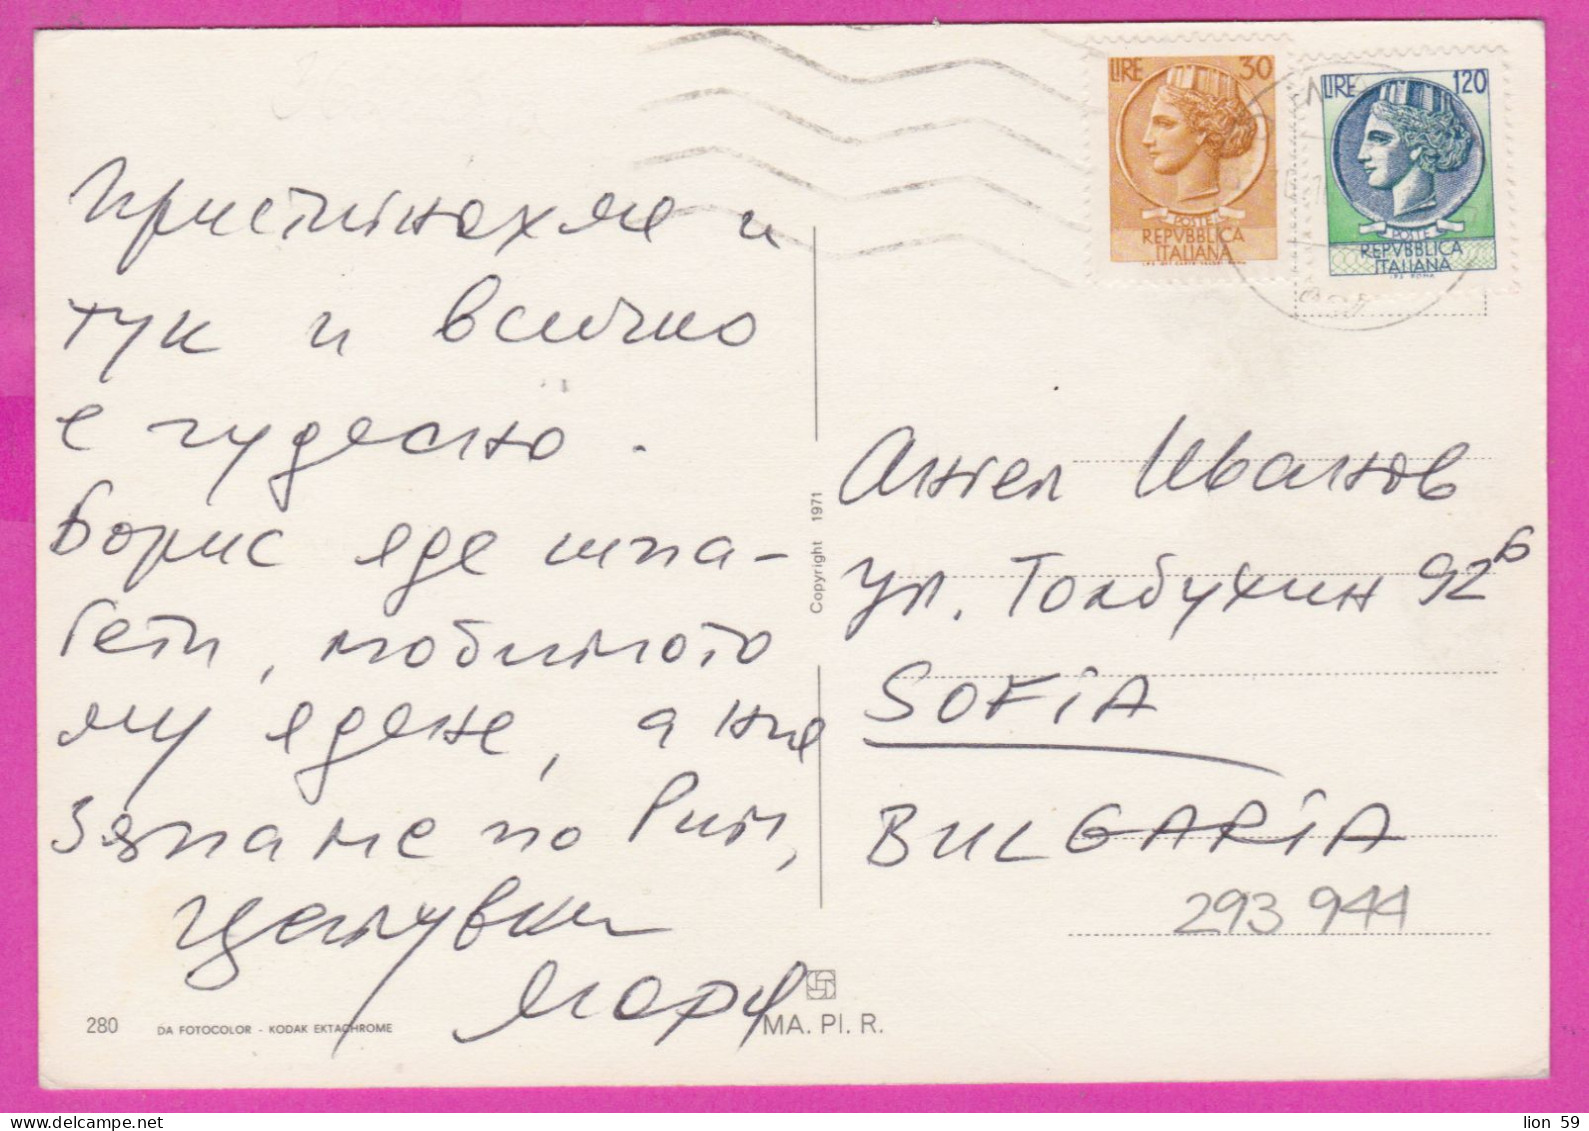 LIRE 30
POSTE
REPVBBLICA
ITALIANA
LIRE 120
POSTE
REPVBBLICA
ITALIANA
I.P.S. ROMA
Пристигнахме и
тук и всичко
е чудесно.
Борис яде шпа-
гети, любимото
му ядене, а ние
зяпаме по Рим,
Целувки
Copyright 1971
Ангел Иванов
ул. Толбухин 92б
SOFiA
BULGARiA
293 944
280 DA FOTOCOLOR - KODAK EKTACHROME
MA. PI. R.
lion 59
www.delcampe.net